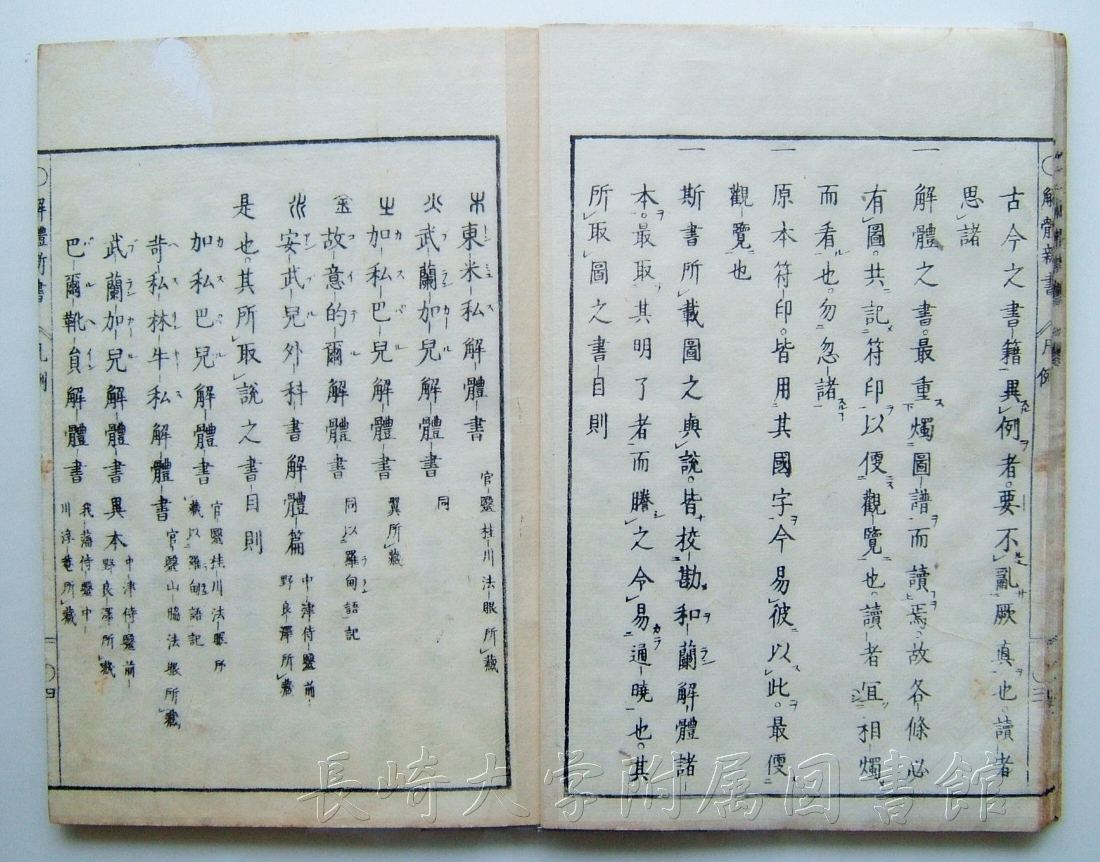 古今之書籍異例者。要不亂厥眞也。讀者
思諸
一解體之書。最重燭圖譜而讀焉。故各條必
有圖。共記符印以便觀覽也。讀者宜相燭
而看也。勿忽諸
一原本符印。皆用其國字今易彼以此。最便
觀覽也
一斯書所載圖之與說。皆校勘和蘭解體諸
本。最取其明了者而謄之今易通曉也。其
所取圖之書目則
東米私解體書 官醫桂川法眼所藏
火 武蘭加兒解體書 同
土 加私巴兒解體書 翼所藏
金 故意的爾解體書 同以羅甸語記
水 安武兒外科書解體篇 中津侍醫前野良澤所藏
是也。其所取說之書目則
加私巴兒解體書 官醫桂川法眼所藏以羅甸語記
苛私林牛私解體書 官醫山脇法眼所藏
武蘭加兒解體書異本 中津侍醫前野良澤所藏
巴爾靴員解體書 我藩侍醫中川淳菴所藏
解體新書 凡例 三
解體新書 凡例 四
長崎大学附属図書館